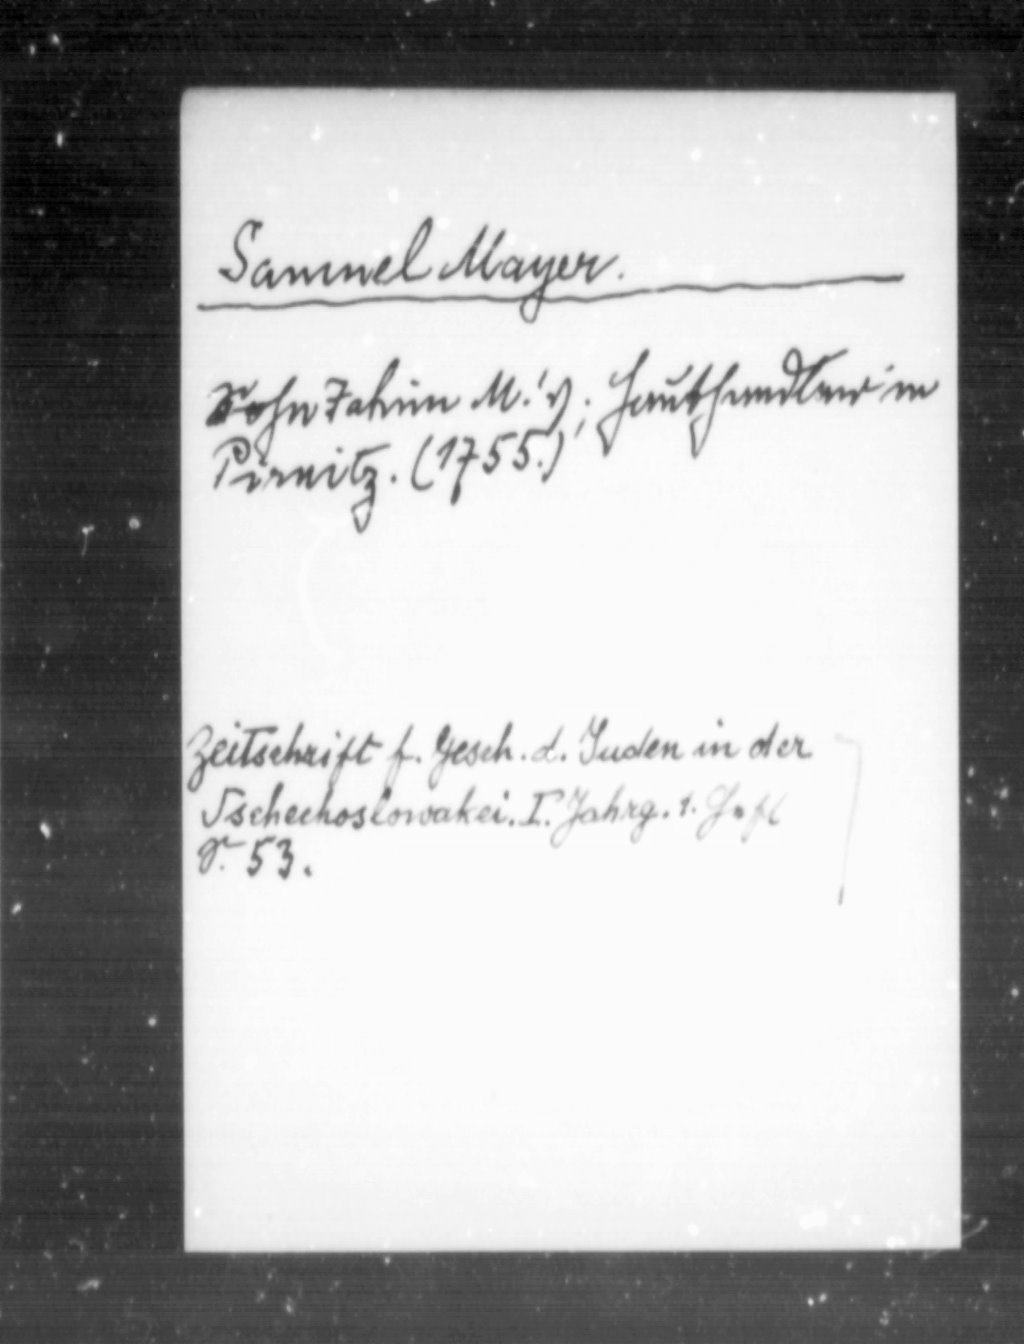 Samuel Mayer.
Sohn Jakim M.'s; Hauthändler in
Pirnitz. (1755.)
Zeitschrift f. Gesch. d. Juden in der
Tschechoslowakei. I. Jahrg. 1. Heft
S. 53.